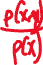 p(x,y)
p(x)